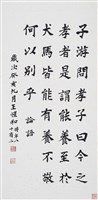 子游問孝子曰今之
孝者是謂能養至於
犬馬皆能有養不敬
何以別乎 論語
歲次癸酉九月王